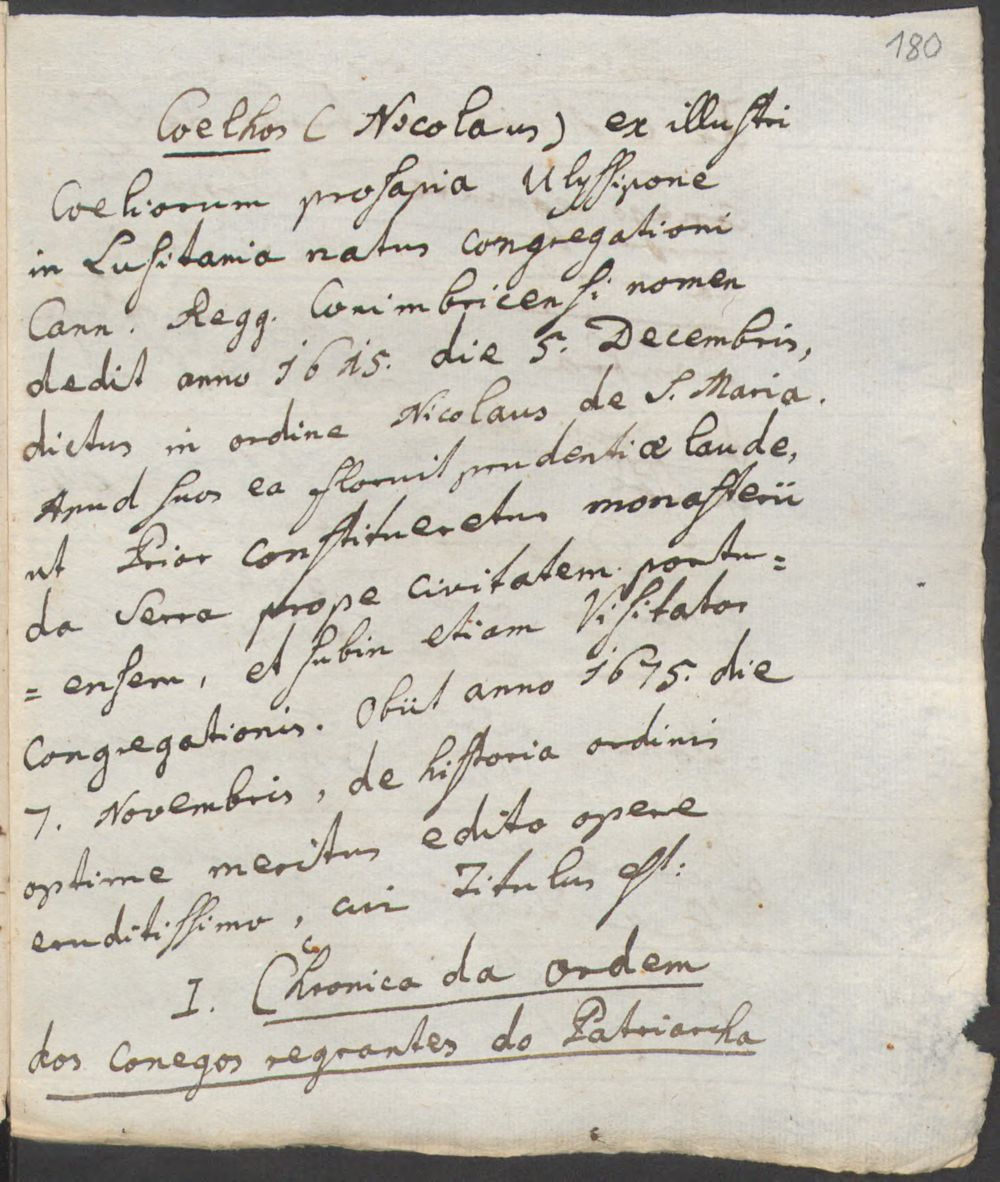 180
Coelhos (Nicolaus) ex illustri
Coeliorum prosapia Ulyssipone
in Lusitania natus congregationi
Cann. Regg. Conimbricensi nomen
dedit anno 1615. die 5. Decembris,
dictus in ordine Nicolaus de S. Maria.
Apud suos ea floruit prudentiæ laude,
ut Prior constitueretur monasterii
da Serra prope civitatem portu=
=ensem, et subin etiam Visitator
Congregationis. Obiit anno 1675. die
7. Novembris, de historia ordinis
optime meritus edito opere
eruditissimo, cui Titulus est:
I. Chronica da ordem
dos conegos regrantes do Patriarcha